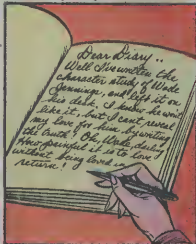 Dear Diary..
Well I've written the
character study of Wade
Jennings, and left it on
his desk, I know he won't
like it, but I can't reveal
my love for him, by writing
the truth! Oh, Wade darling
How painful it is to love
without being loved in
return!